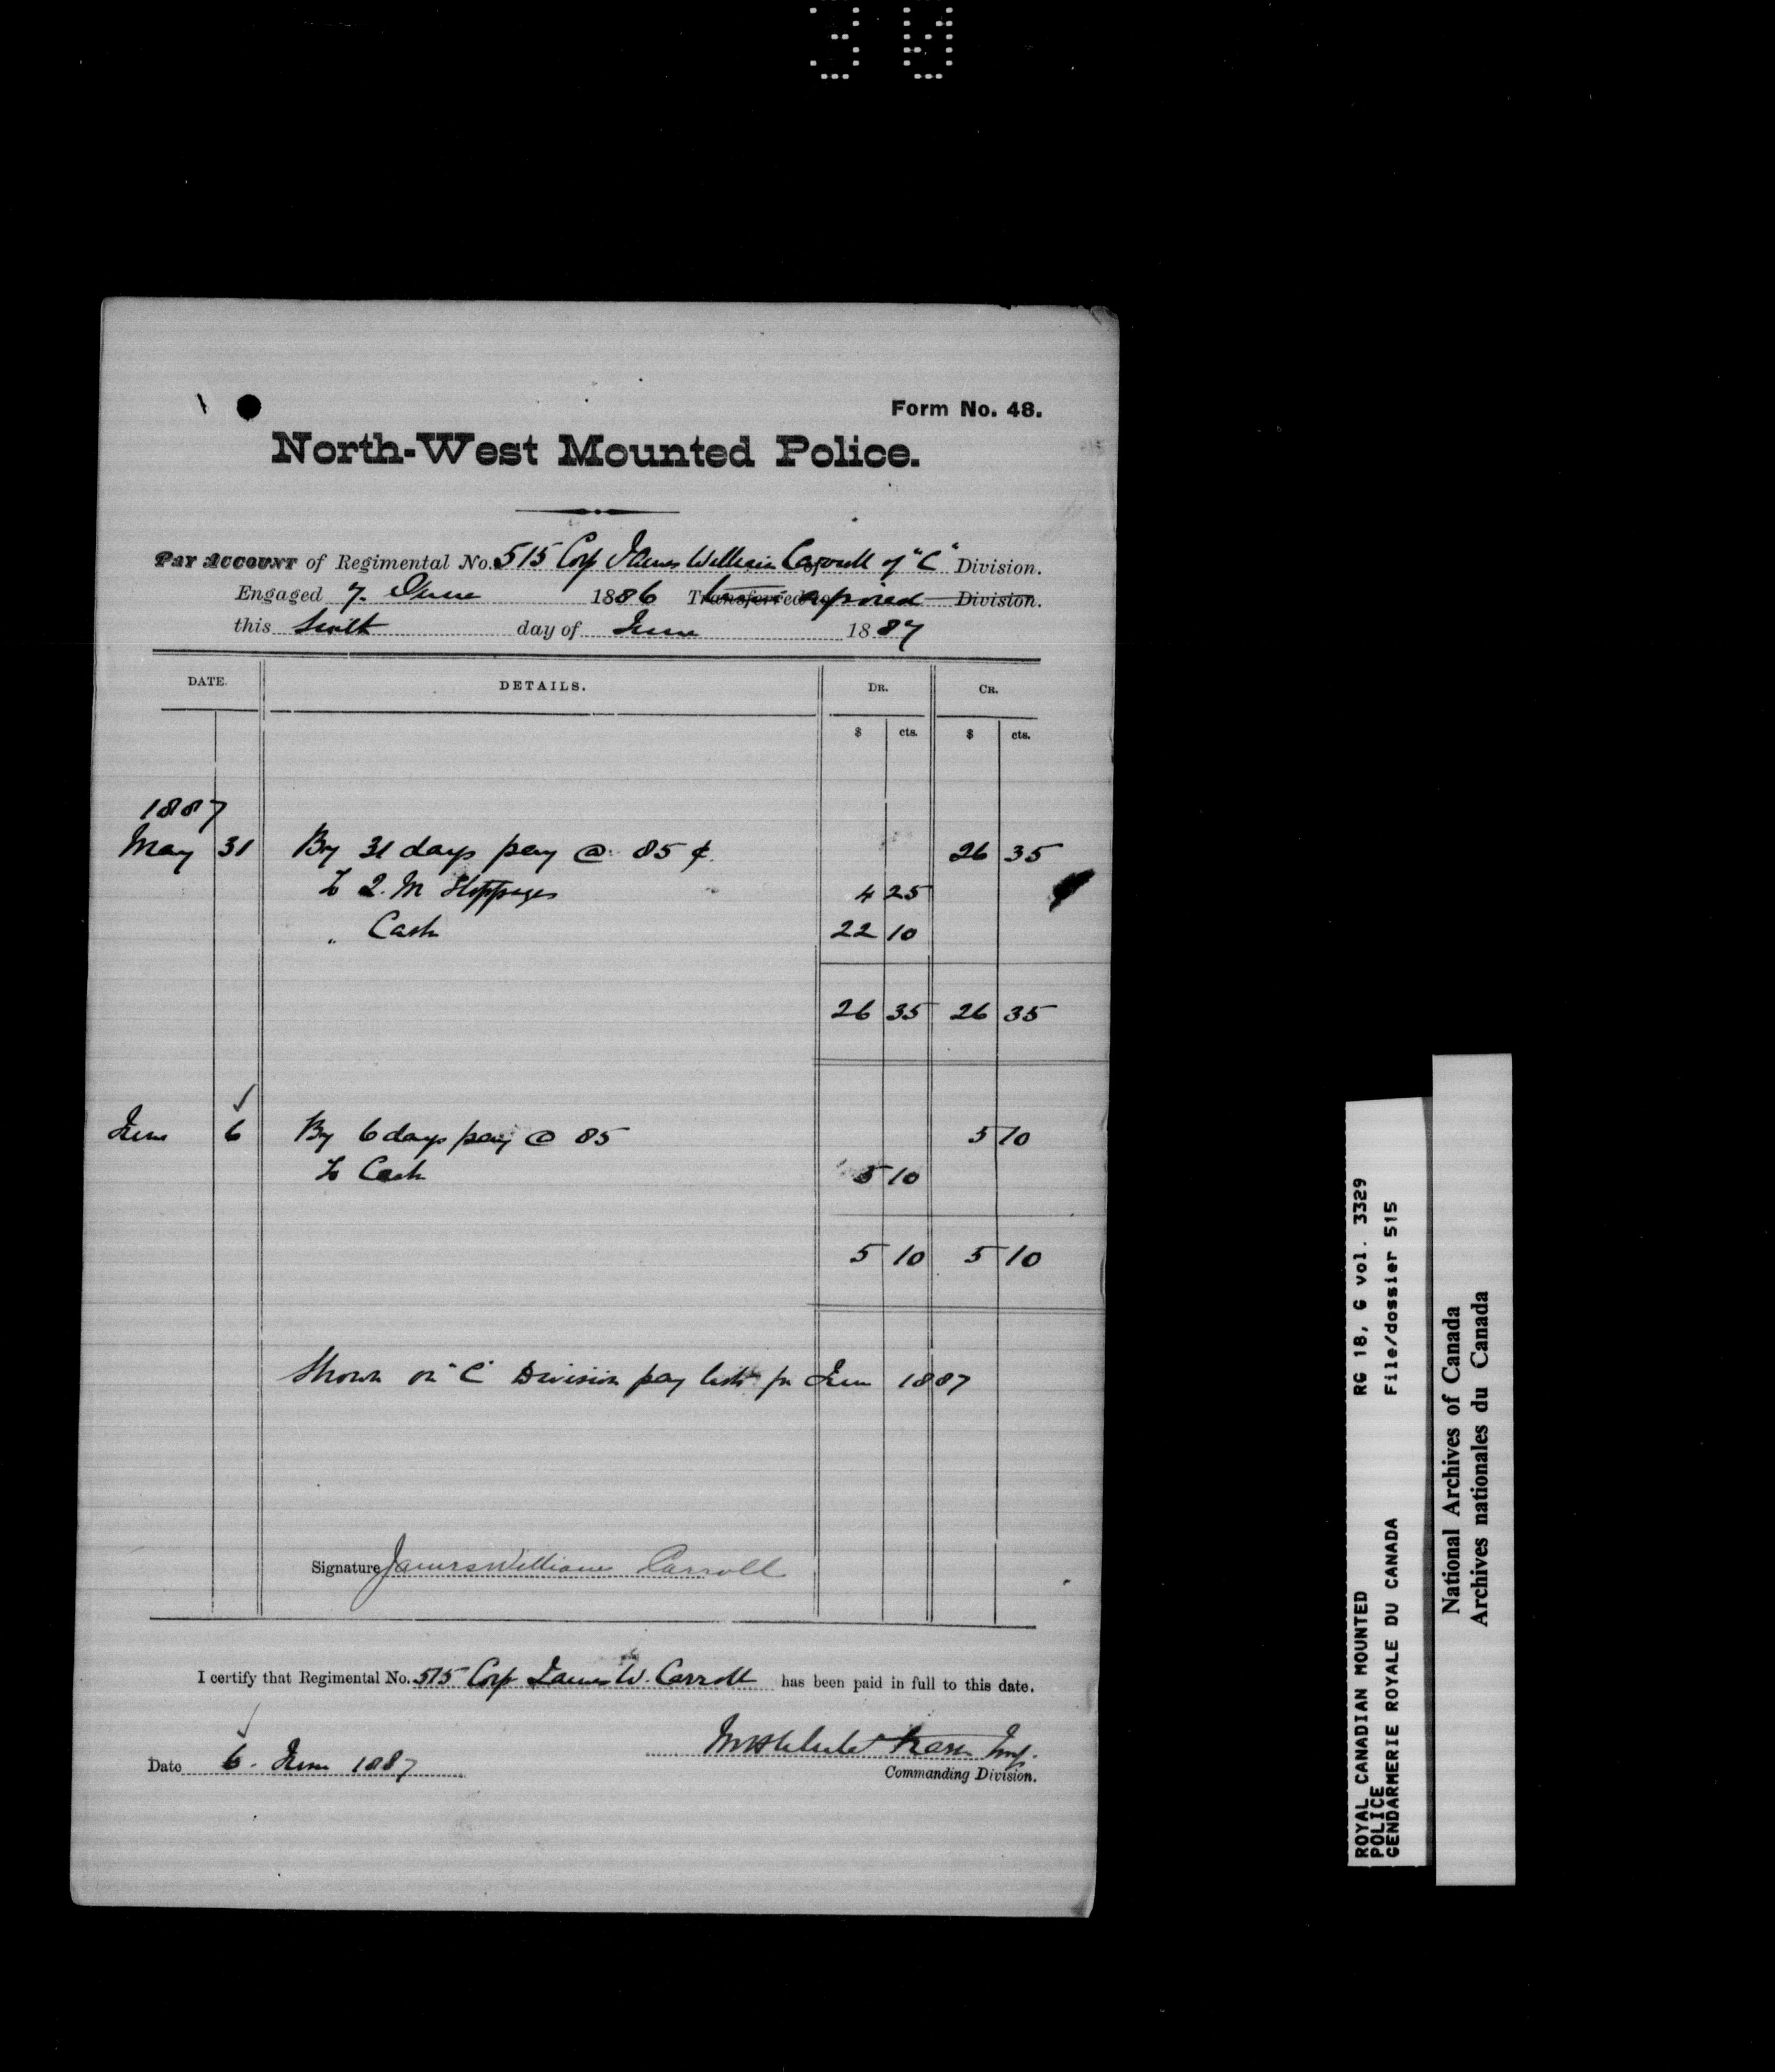 30
Form No. 48.
North-West Mounted Police.
Pay Account of Regimental No. 515 Corp James William Carroll of "C" Division.
Engaged 7. June 1886 Transferred to expired Division.
this Sixth day of June 1887
DATE. DETAILS. DR. CR.
$ cts. $ cts.
1887
May 31 By 31 days pay @ 85 ¢ 26 35
To Q. M Stoppages 4 25
" Cash 22 10
26 35 26 35
June 6 By 6 days pay @ 85 5 10
To Cash 5 10
5 10 5 10
Shown on "C" Division pay list for June 1887
Signature James William Carroll
I certify that Regimental No. 515 Corp James W. Carroll has been paid in full to this date.
Date 6. June 1887
Insp.
Commanding Division.
ROYAL CANADIAN MOUNTED RG 18, G vol. 3329
POLICE
GENDARMERIE ROYALE DU CANADA File/dossier 515
National Archives of Canada
Archives nationales du Canada